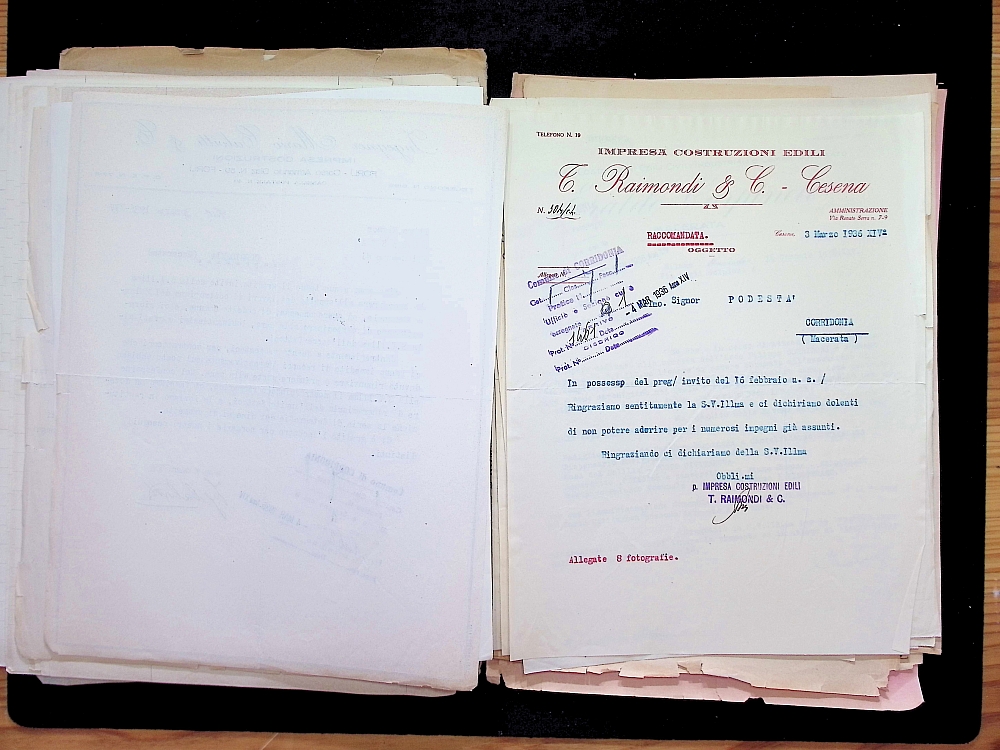 TELEFONO N. 19
IMPRESA COSTRUZIONI EDILI
T. Raimondi & C. - Cesena
N.
AMMINISTRAZIONE
Via Renato Serra n. 7-9
RACCOMANDATA.
Cesena, 3 Marzo 1936 XIVª
OGGETTO
CORRIDONIA
Cat. Clas. Fasc.
Pratica N.
Ufficio e
- 4 MAR. 1936 Anno XIV
Prot. N. Data
Prot. N. Data
Signor PODESTA'
CORRIDONIA
( Macerata )
In possessp del preg/ invito del 16 febbraio u. s. /
Ringraziamo sentitamente la S.V.Illma e ci dichiriamo dolenti
di non potere aderire per i numerosi impegni già assunti.
Ringraziando ci dichiariamo della S.V.Illma
Obbli.mi
p. IMPRESA COSTRUZIONI EDILI
T. RAIMONDI & C.
Allegate 8 fotografie.